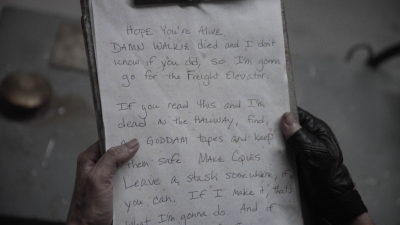 HOPE YOU'RE ALIVE
DAMN WALKIE died and I don't
know if you did, so I'm gonna
go for the Freight Elevator.
If you read this and I'm
dead IN the HALLWAY, find
GODDAM tapes and keep
them safe MAKE COPIES
Leave a stash somewhere, if
you can. If I make it, that's
what I'm gonna do. And if